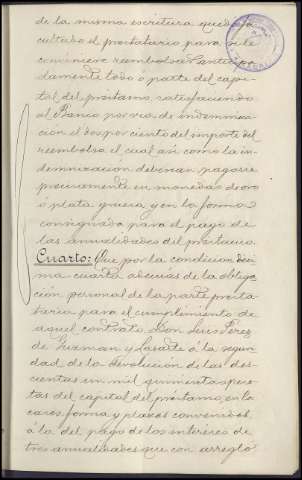 de la misma escritura quedó fa-
cultado el prestatario para si le
conviniere reembolsar anticipa-
damente todo ó parte del capi-
tal del préstamo satisfaciendo
al Banco por via de indemniza-
cion el dos por ciento del importe del
reembolso el cual asi como la in-
demnizacion deberian pagarse
precisamente en monedas de oro
ó plata gruesa y en la forma
consignada para el pago de
las anualidades del préstamo.
Cuarto: Que por la condicion deci
ma cuarta además de la obliga-
ción personal de la parte presta-
taria para el cumplimiento de
aquel contrato Don Luis Perez
de Guzman y Lasarte á la seguri-
dad de la devolucion de las dos-
cientas un mil quinientas pese-
tas del capital del préstamo, en los
casos, forma y plazos convenidos,
á la del pago de los intereses de
tres anualidades que con arreglo